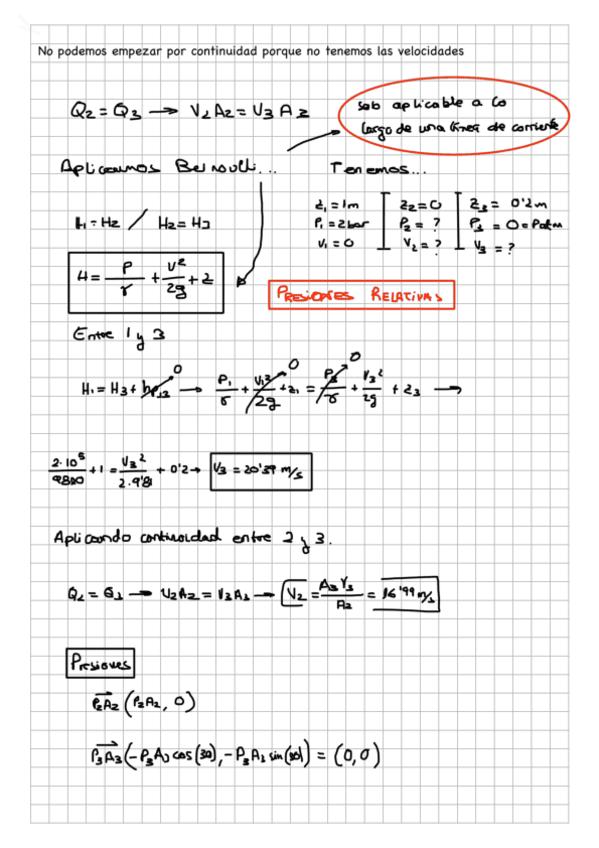 No podemos empezar por continuidad porque no tenemos las velocidades
Q2 = Q3 → V2A2 = V3A2
Solo aplicable a lo
largo de una línea de corriente
Aplicamos Bernoulli...
Tenemos...
z1 = 1m
P1 = 2bar
V1 = 0
z2 = 0
P2 = ?
V2 = ?
z3 = 0'2m
P3 = 0 = Patm
V3 = ?
H1 = H2 / H2 = H3
H = P/γ + V²/2g + z
PRESIONES RELATIVAS
Entre 1 y 3
H1 = H3 + hp13 0 → P1/γ + V1²/2g 0 + z1 = P3/γ 0 + V3²/2g + z3 →
2·10⁵/9800 + 1 = V3²/2·9'81 + 0'2 → V3 = 20'39 m/s
Aplicando continuidad entre 2 y 3.
Q2 = Q3 → V2A2 = V3A3 → V2 = A3V3/A2 = 16'99 m/s
Presiones
P2A2 (P2A2, 0)
P3A3 (-P3A3 cos(30), -P3A3 sin(30)) = (0,0)